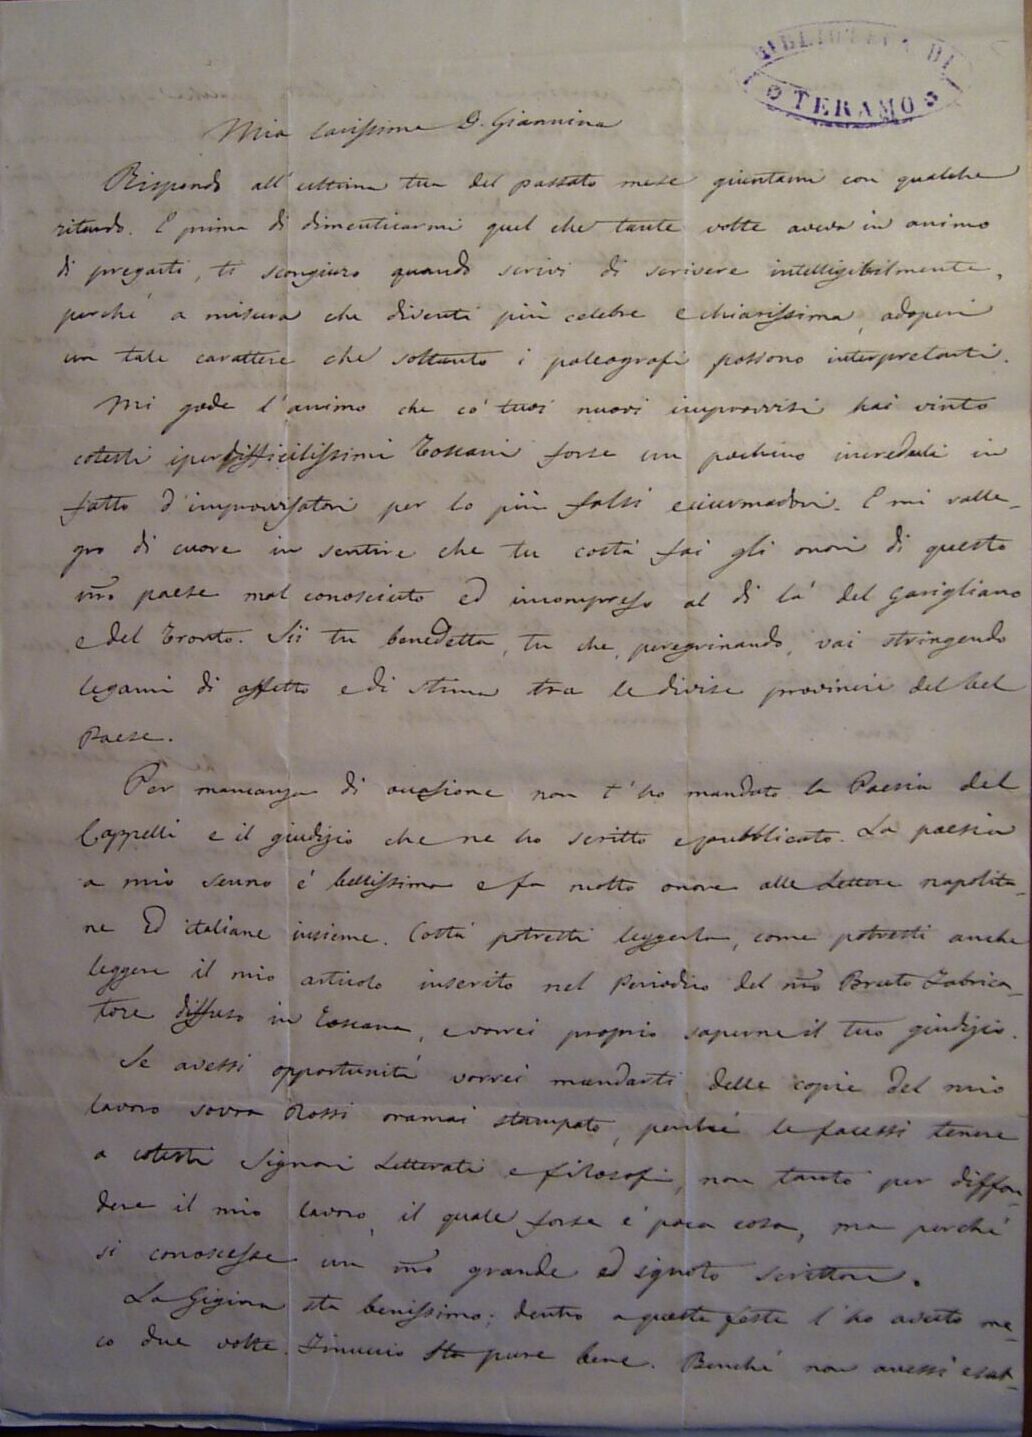 BIBLIOTECA DI
TERAMO
Mia carissima D. Giannina
Rispondo all'ultima tua del passato mese giuntami con qualche
ritardo. E prima di dimenticarmi quel che tante volte aveva in animo
di pregarti, ti scongiuro quando scrivi di scrivere intelligibilmente,
perché a misura che diventi più celebre e chiarissima, adoperi
un tale carattere che soltanto i paleografi possono interpretarti.
Mi gode l'animo che co' tuoi nuovi improvvisi hai vinto
cotesti iperdifficilissimi Toscani forse un pochino increduli in
fatto d'improvvisatori per lo più falsi e ciurmadori. E mi ralle-
gro di cuore in sentire che tu costà fai gli onori di questo
nro paese mal conosciuto ed incompreso al di là del Garigliano
e del Tronto. Sii tu benedetta, tu che, peregrinando, vai stringendo
legami di affetto e di stima tra le divise provincie del bel
Paese.
Per mancanza di occasione non t'ho mandato la Poesia del
Cappelli e il giudizio che ne ho scritto e pubblicato. La poesia
a mio senno è bellissima e fa molto onore alle Lettere napolita-
ne ed italiane insieme. Costà potresti leggerla, come potresti anche
leggere il mio articolo inserito nel Periodico del nro Bruto Fabrica-
tore diffuso in Toscana, e vorrei proprio saperne il tuo giudizio.
Se avessi opportunità vorrei mandarti delle copie del mio
lavoro sovra Rossi oramai stampato, perché le facessi tenere
a cotesti Signori Letterati e filosofi, non tanto per diffon-
dere il mio lavoro, il quale forse è poca cosa, ma perché
si conoscesse un nro grande ed ignoto scrittore.
La Gigina sta benissimo; dentro a queste feste l'ho avuto me-
co due volte. Finuccio sta pure bene. Benché non avessi esat-